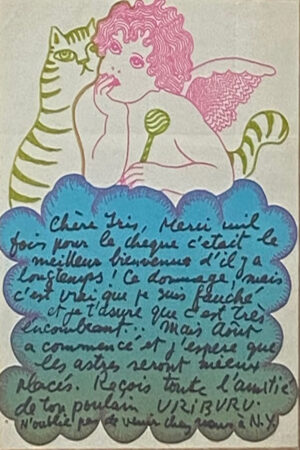 Chère Iris, Merci mil
fois pour le cheque c'était le
meilleur bienvenue d'il y a
longtemps! Ce dommage, mais
c'est vrai que je suis fauché
et je t'asure que c'est très
encombeant.. Mais Août
a commencé et j'espere que
les astres seront mieux
placés. Reçois toute l'amitié
de ton poulain URIBURU.
N'oublie pas de venir chez nous à N.Y.